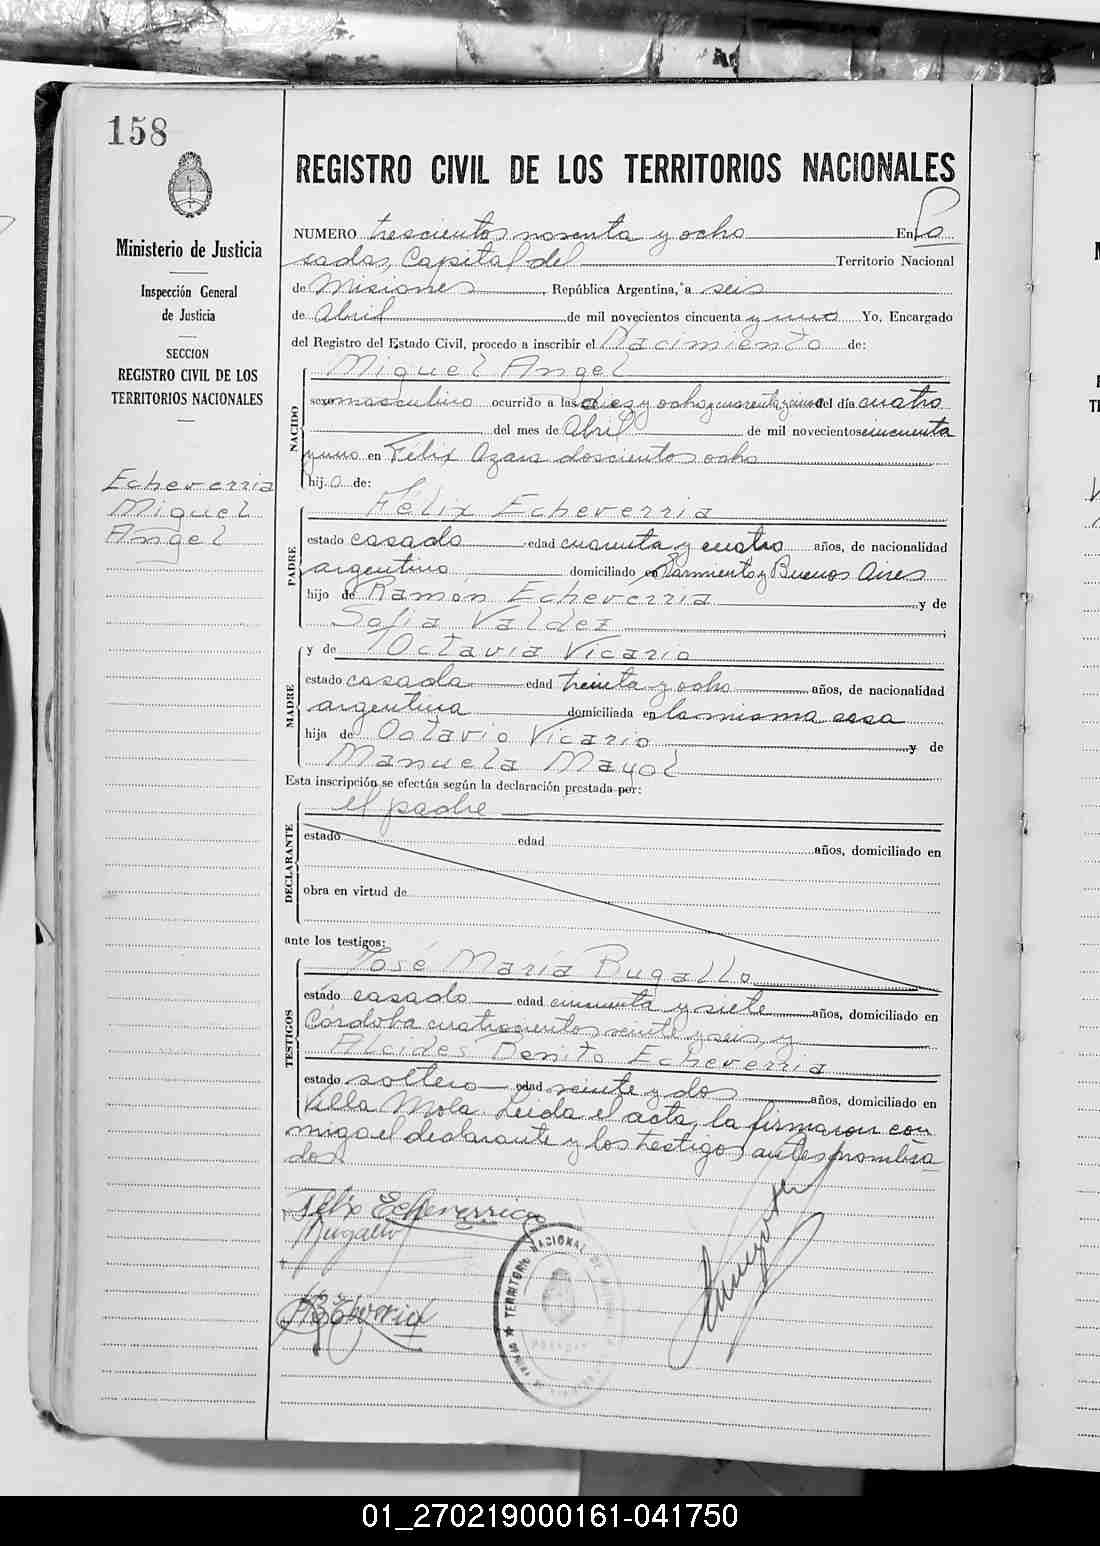 158
Ministerio de Justicia
Inspección General
de Justicia
SECCION
REGISTRO CIVIL DE LOS
TERRITORIOS NACIONALES
Echeverria
Miguel
Angel
REGISTRO CIVIL DE LOS TERRITORIOS NACIONALES
NUMERO trescientos noventa y ocho En Po
sadas, Capital del Territorio Nacional
de Misiones, República Argentina, a seis
de Abril de mil novecientos cincuenta y uno Yo, Encargado
del Registro del Estado Civil, procedo a inscribir el Nacimiento de:
Miguel Angel
NACIDO
sexo masculino ocurrido a las diez y ocho y cuarenta y cinco del día cuatro
del mes de Abril de mil novecientos cincuenta
y uno en Félix Azara doscientos ocho
hijo de:
Félix Echeverria
PADRE
estado casado edad cuarenta y cuatro años, de nacionalidad
argentino domiciliado en Sarmiento y Buenos Aires
hijo de Ramón Echeverria y de
Sofia Valdez
y de Octavia Vicario
MADRE
estado casada edad treinta y ocho años, de nacionalidad
argentina domiciliada en la misma casa
hija de Octavio Vicario y de
Manuela Mayol
Esta inscripción se efectúa según la declaración prestada por:
el padre
DECLARANTE
estado edad años, domiciliado en
obra en virtud de
ante los testigos:
José María Bugallo
TESTIGOS
estado casado edad cincuenta y siete años, domiciliado en
Córdoba cuatrocientos veinte y seis, y
Alcides Benito Echeverria
estado soltero edad veinte y dos años, domiciliado en
Villa Mola. Leida el acta, la firmaron con
migo el declarante y los testigos antes nombra
dos.
Félix Echeverria
Bugallo
TERRITORIO NACIONAL DE
POSADAS
01_270219000161-041750